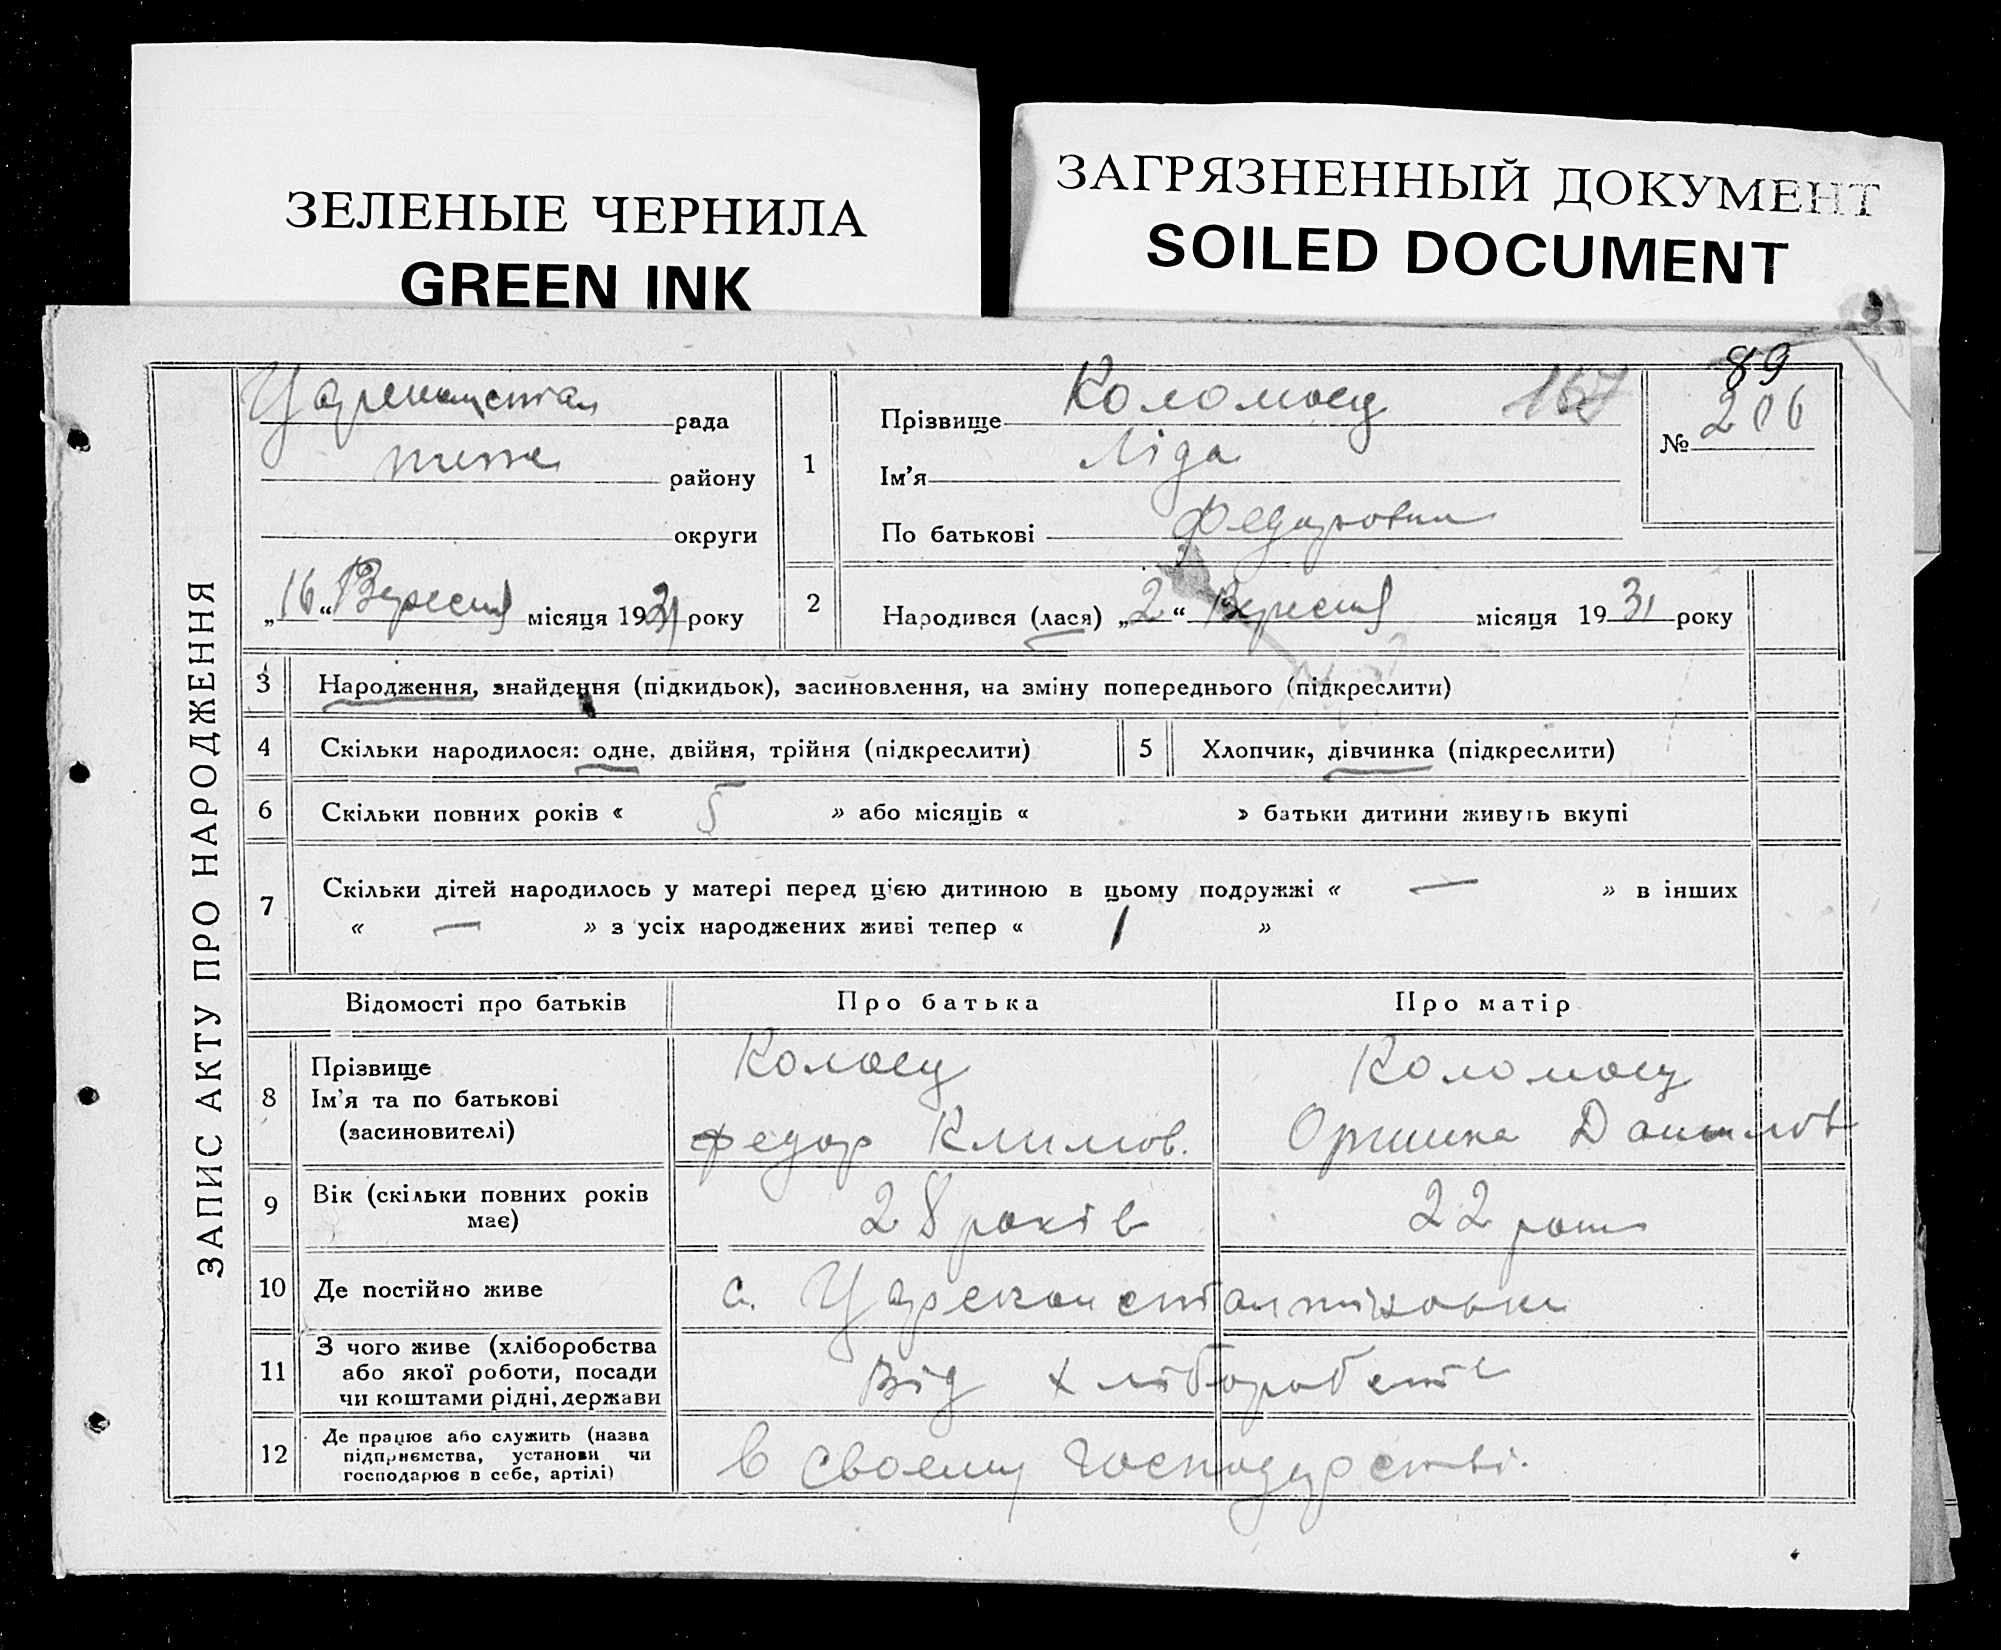 ЗЕЛЕНЫЕ ЧЕРНИЛА
GREEN INK
ЗАГРЯЗНЕННЫЙ ДОКУМЕНТ
SOILED DOCUMENT
ЗАПИС АКТУ ПРО НАРОДЖЕННЯ
рада
району
округи
„16“ Вересня місяця 1931 року
89
167
№ 206
1
Прізвище
Ім'я Ліда
По батькові
2
Народився (лася) „2“ Вересня місяця 1931 року
3 Народження, знайдення (підкидьок), засиновлення, на зміну попереднього (підкреслити)
4 Скільки народилося: одне, двійня, трійня (підкреслити)
5 Хлопчик, дівчинка (підкреслити)
6 Скільки повних років « 5 » або місяців « » батьки дитини живуть вкупі
7 Скільки дітей народилось у матері перед цією дитиною в цьому подружжі « — » в інших
« — » з усіх народжених живі тепер « 1 »
Відомості про батьків Про батька Про матір
8 Прізвище
Ім'я та по батькові
(засиновителі)
Федор Климов.
9 Вік (скільки повних років
має)
28 років
22 роки
10 Де постійно живе
с.
11 З чого живе (хліборобства
або якої роботи, посади
чи коштами рідні, держави
Від хліборобств
12 Де працює або служить (назва
підприємства, установи чи
господарює в себе, артілі)
в своему господарстві.